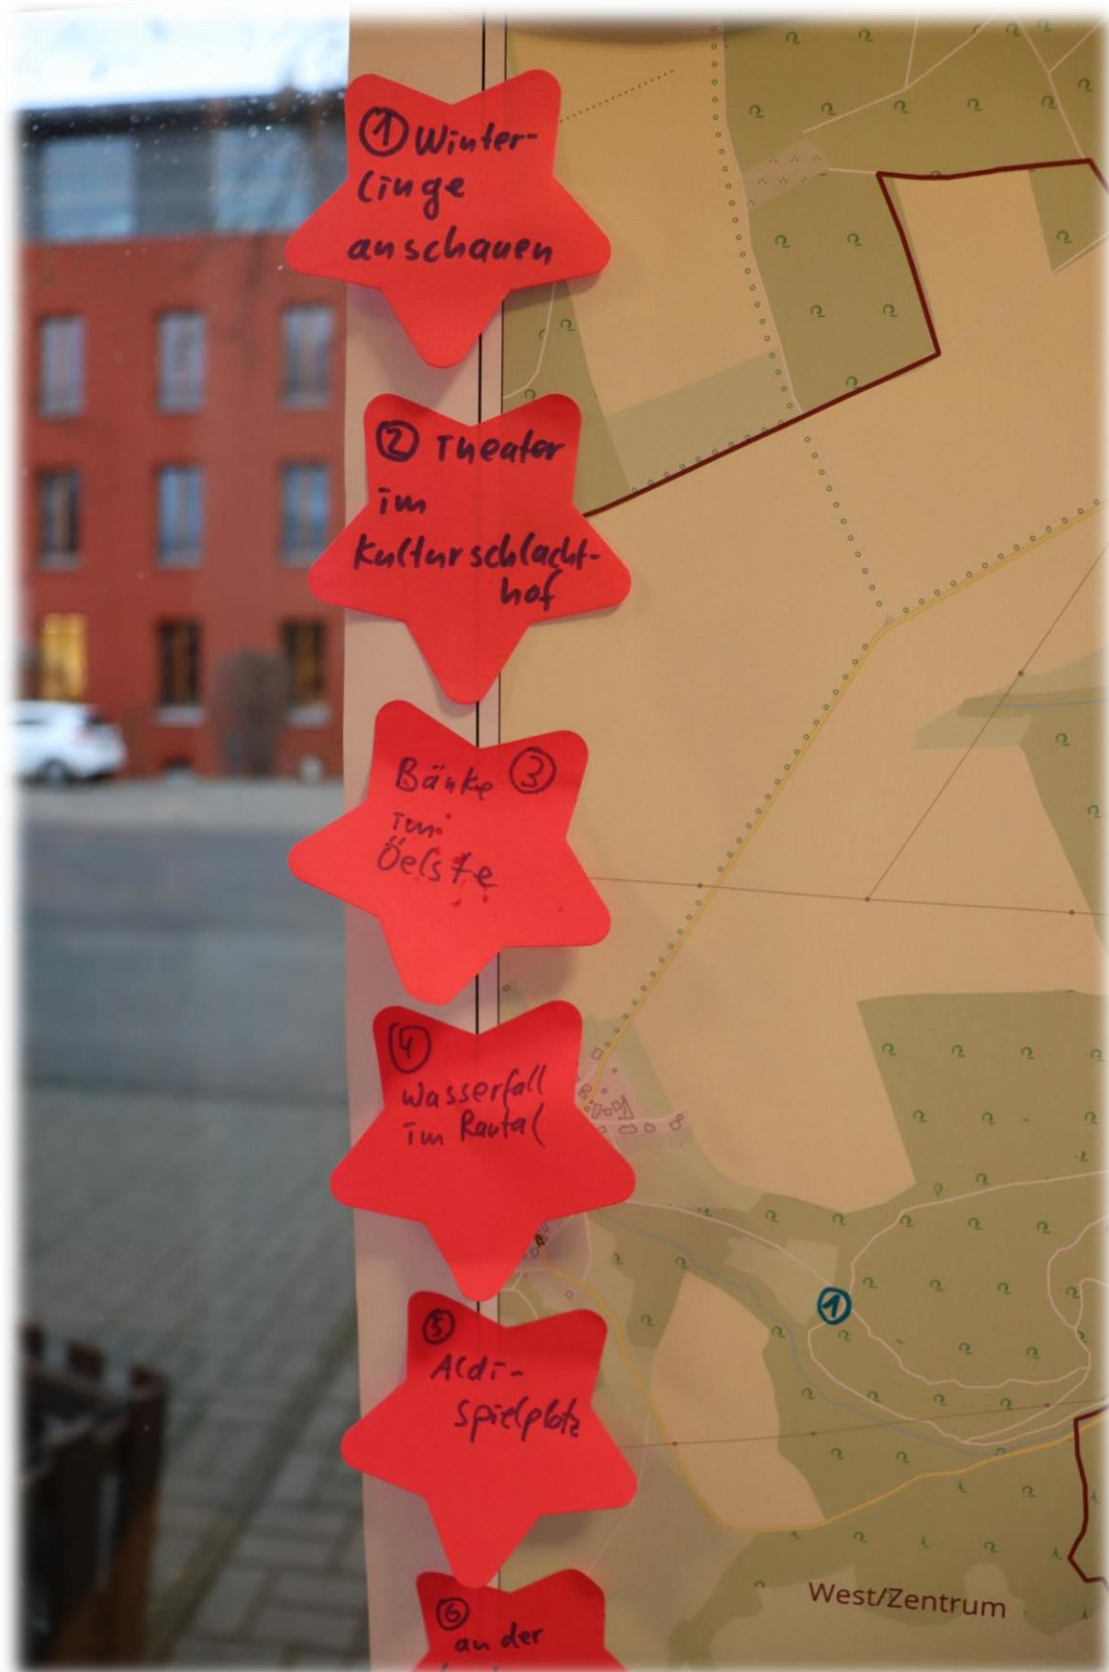 ① Winter-
linge
anschauen
② Theater
im
Kulturschlacht-
hof
Bänke ③
im
Öelste
④
Wasserfall
im Rautal
⑤
Aldi-
spielplatz
⑥
an der
①
West/Zentrum